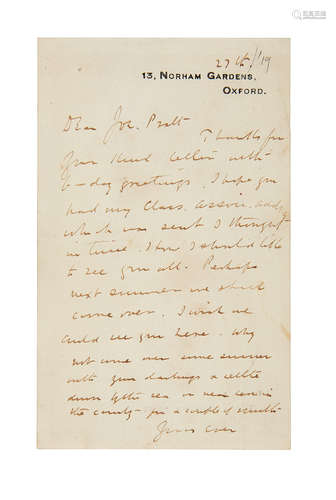 27th /19
13, NORHAM GARDENS,
OXFORD.
Dear Joe. Pratt
Thanks for
your kind letter with
b-day greetings. I hope you
had my Class. Assoc. add
which was sent I thought
in time. How I should like
to see you all. Perhaps
next summer we shall
come over. I wish we
could see you here. Why
not come over some summer
with your darlings & settle
down by the sea or near
the country for a couple of months
Yours ever